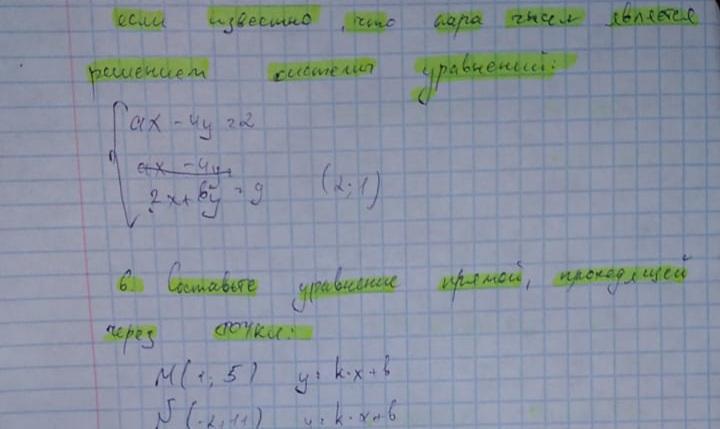 если известно, что пара чисел является
решением системы уравнений:
ax - 4y = 2
ax - 4y
2x + by = 9 (2; 1)
6. Составьте уравнение прямой, проходящей
через точки:
M(1; 5) y = k·x+b
N(-2; 11) y = k·x+b